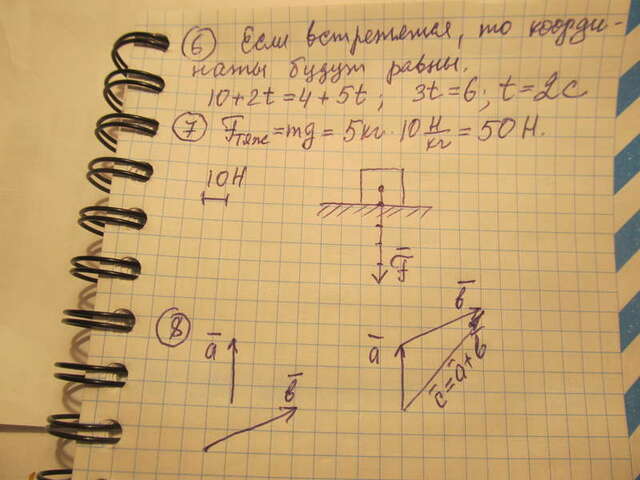 ⑥ Если встретятся, то коорди-
наты будут равны.
10+2t=4+5t; 3t=6; t=2c
⑦ Fтяж=mg=5кг·10 Н/кг=50Н.
10Н
F̅
⑧
a̅
b̅
a̅
b̅
c̅=a̅+b̅